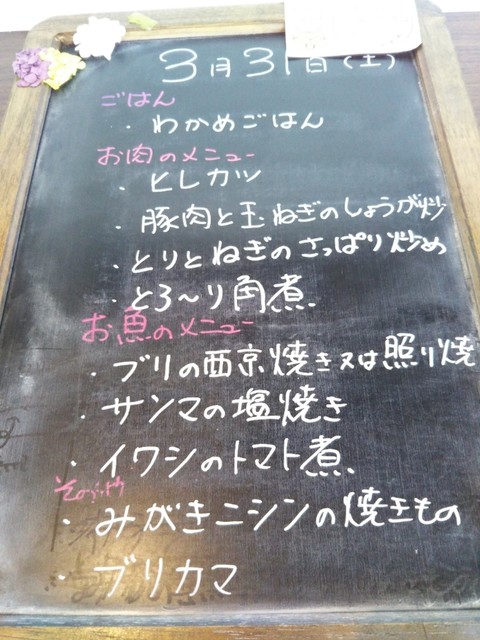 3月31日(土)
ごはん
・わかめごはん
お肉のメニュー
・ヒレカツ
・豚肉と玉ねぎのしょうが炒
・とりとねぎのさっぱり炒め
・とろ〜り角煮
お魚のメニュー
・ブリの西京焼き又は照り焼
・サンマの塩焼き
・イワシのトマト煮
・みがきニシンの焼きもの
・ブリカマ